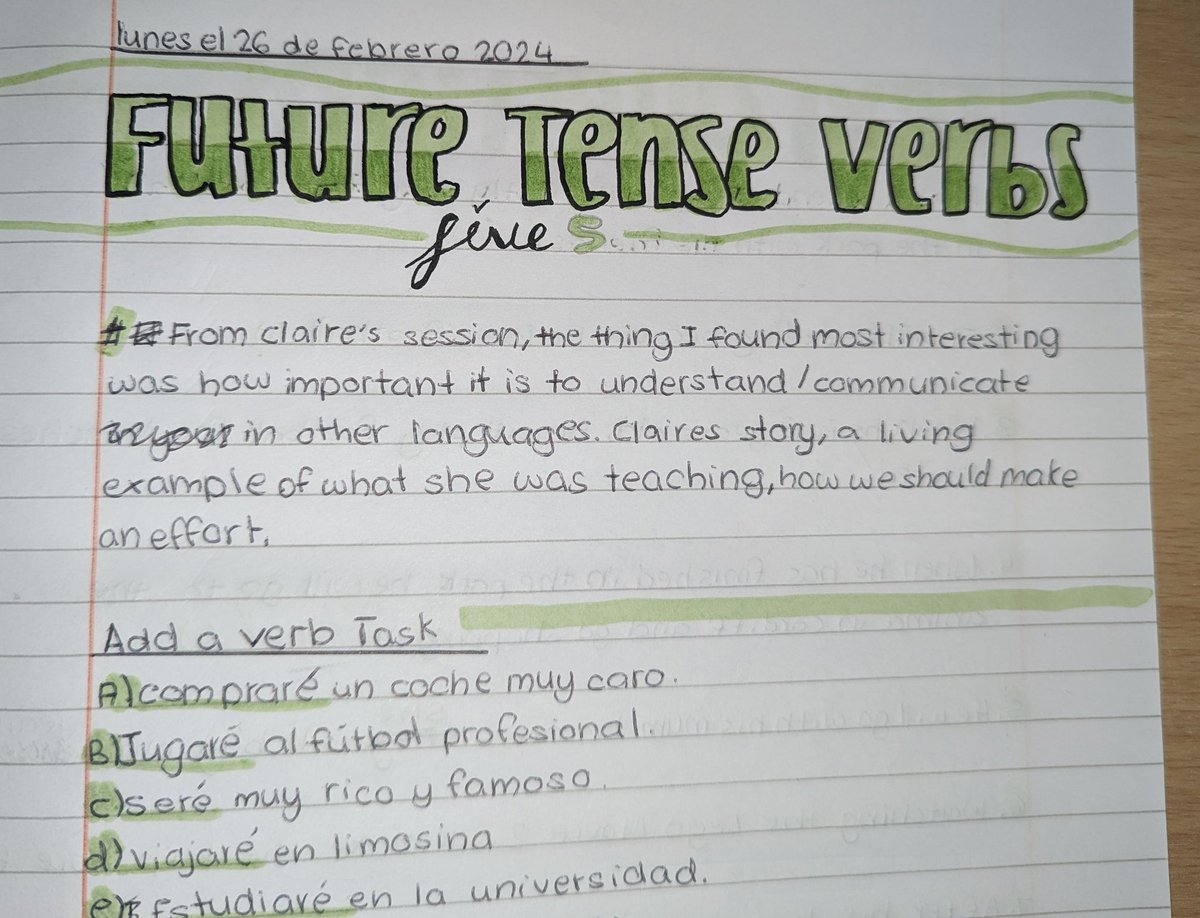 lunes el 26 de febrero 2024
Future Tense Verbs
five S
From Claire's session, the thing I found most interesting
was how important it is to understand/communicate
in other languages. Claires story, a living
example of what she was teaching, how we should make
an effort.
Add a verb Task
A) compraré un coche muy caro.
B) Jugaré al fútbol profesional.
c) seré muy rico y famoso.
d) viajaré en limosina
e) Estudiaré en la universidad.